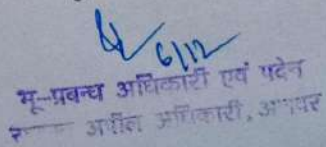 6/12
भू-प्रबन्ध अधिकारी एवं पदेन
अपील अधिकारी,